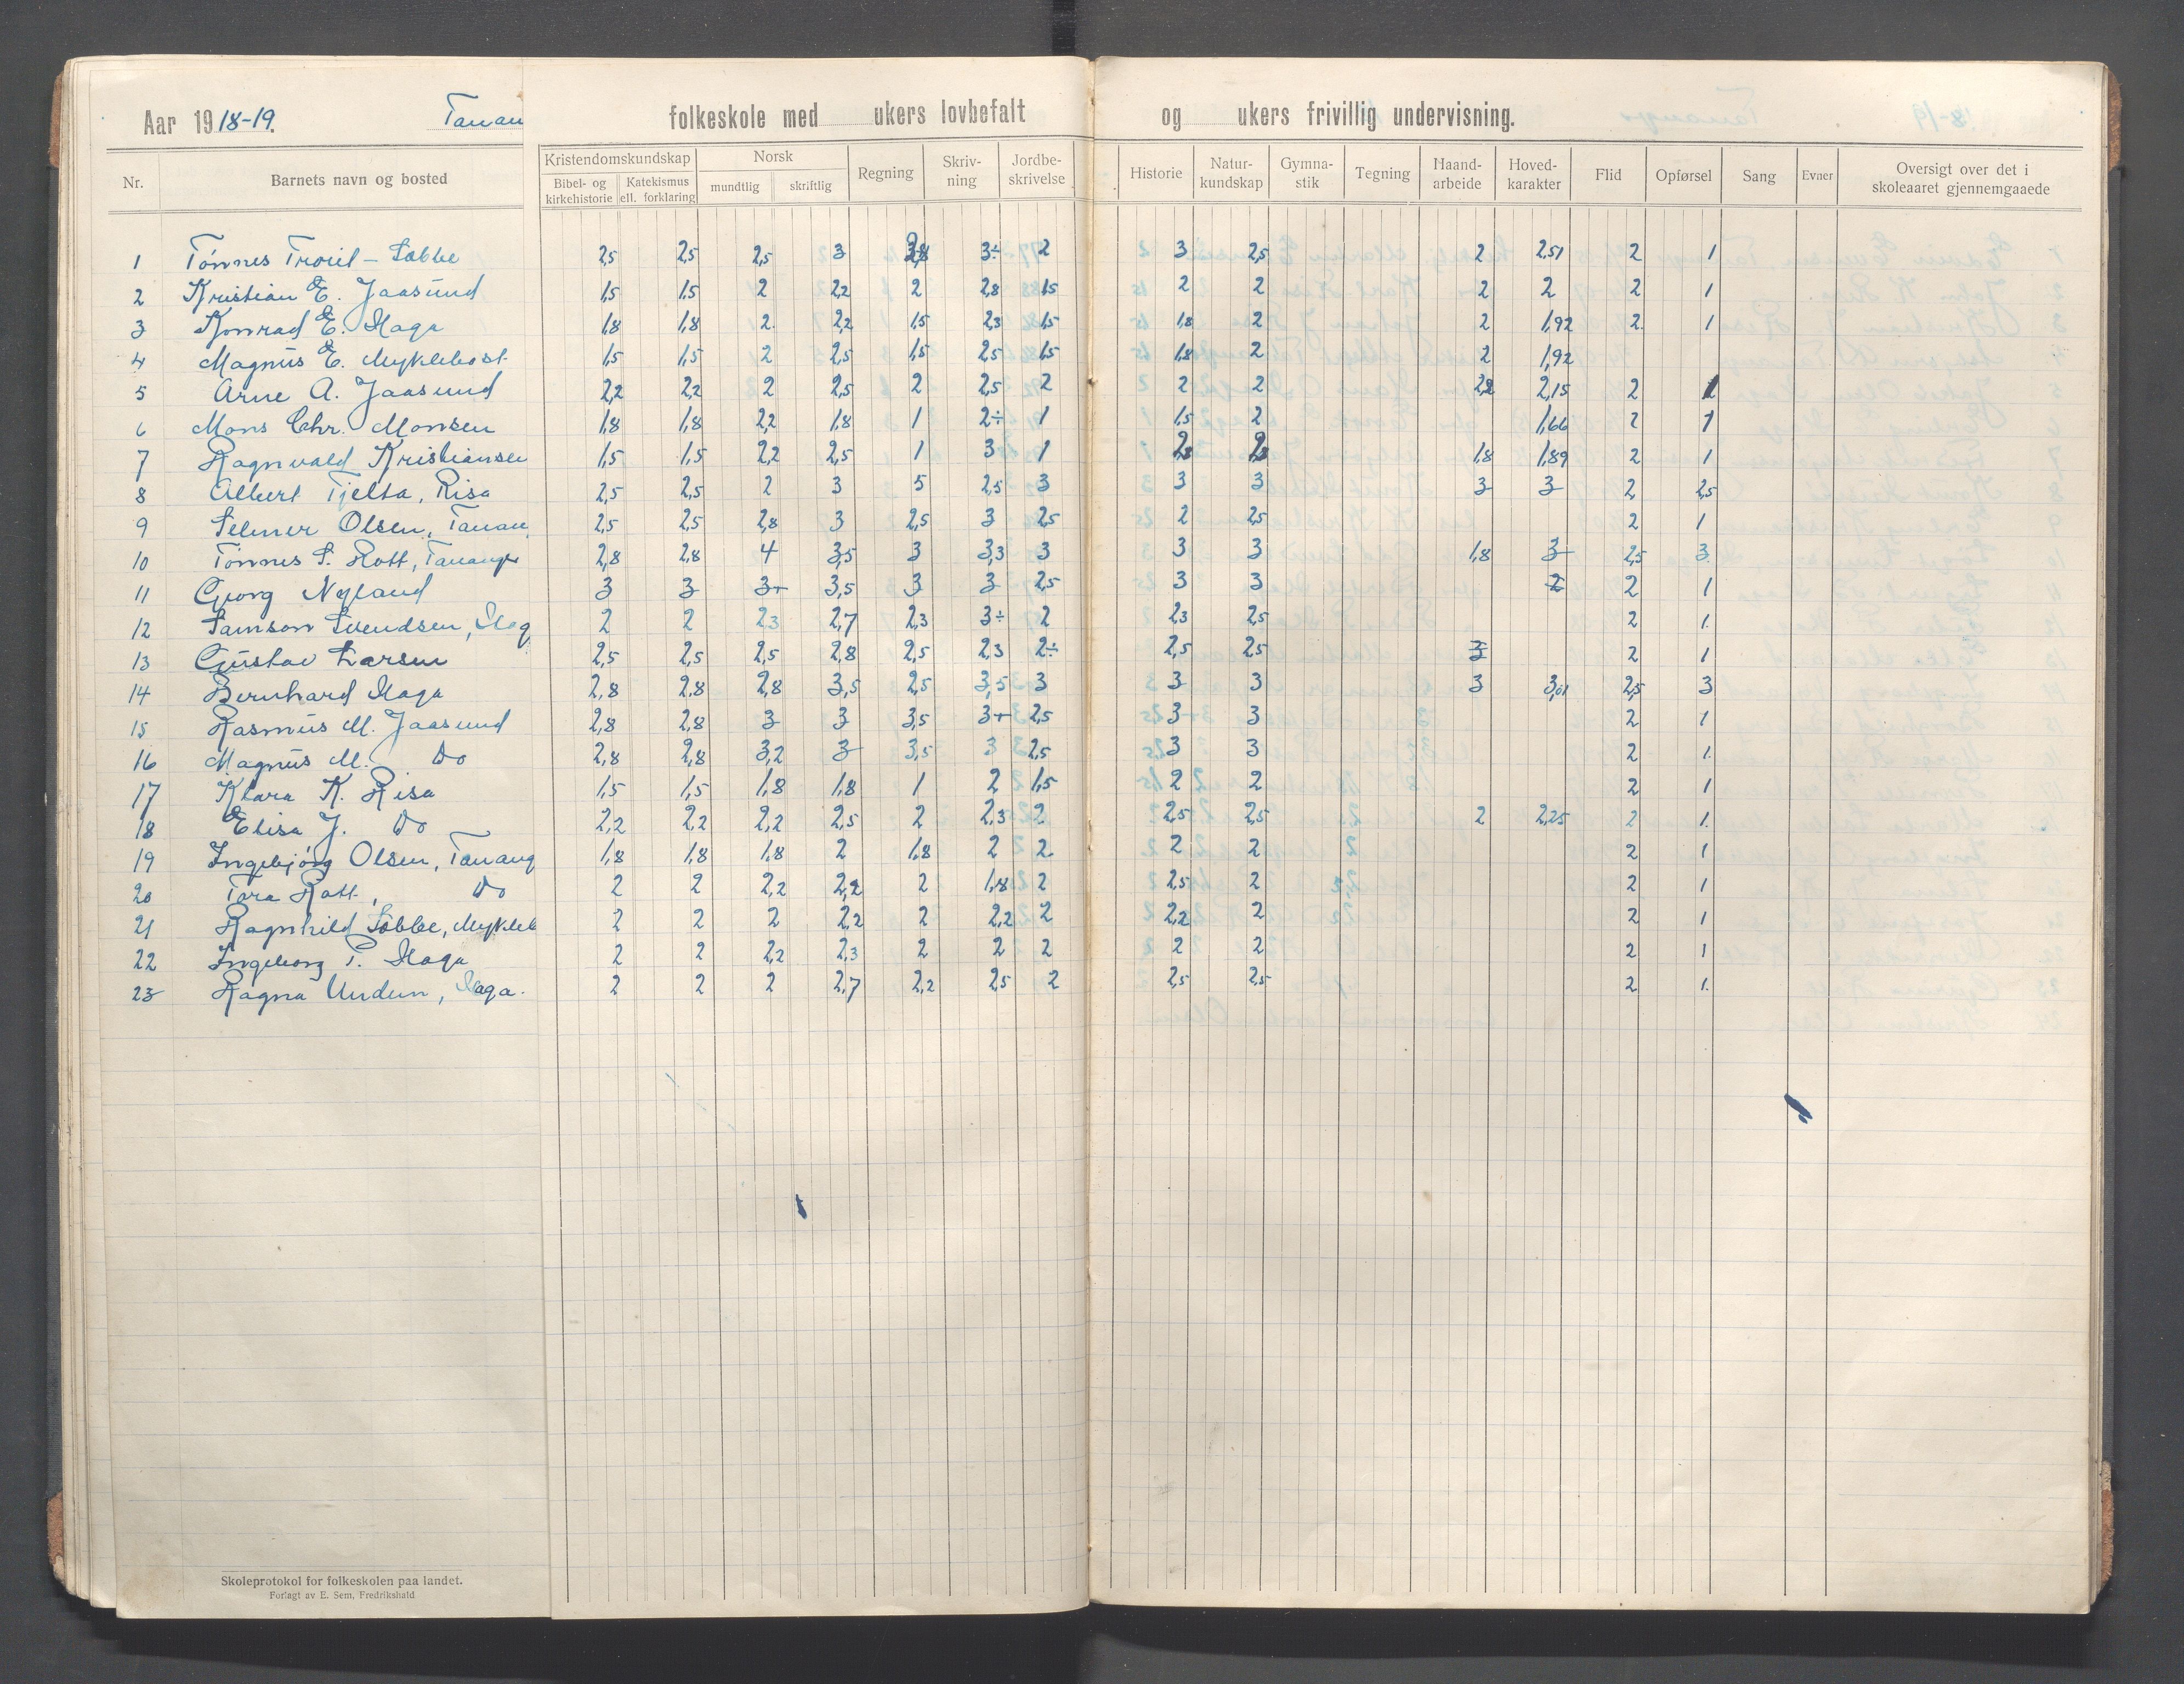 Aar 1918-19. Tanan folkeskole med ukers lovbefalt og ukers frivillig undervisning.
Nr. Barnets navn og bosted Kristendomskundskap Bibel- og kirkehistorie Katekismus ell. forklaring Norsk mundtlig skriftlig Regning Skriv-ning Jordbe-skrivelse Historie Natur-kundskap Gymna-stik Tegning Haand-arbeide Hoved-karakter Flid Opførsel Sang Evner Oversigt over det i skoleaaret gjennemgaaede
1 Tönnes - Sæbbe 2,5 2,5 2,5 3 3÷ 2 3 2,5 2 2,51 2 1
2 Kristian E. Jaasund 1,5 1,5 2 2,2 2 2,8 1,5 2 2 2 2 2 1
3 Konrad E. Haga 1,8 1,8 2. 2,2 1,5 2,3 1,5 1,8 2 2 1,92 2. 1
4 Magnus E. Myklebost 1,5 1,5 2 2,5 1,5 2,5 1,5 1,8 2 2 1,92
5 Arne A. Jaasund 2,2 2,2 2 2,5 2 2,5 2 2 2 2,2 2,15 2 1
6 Mons Chr. Monsen 1,8 1,8 2,2 1,8 1 2÷ 1 1,5 2 1,66 2 1
7 Ragnvald Kristiansen 1,5 1,5 2,2 2,5 1 3 1 1,8 1,89 2 1
8 Albert Tjelta, Risa 2,5 2,5 2 3 5 2,5 3 3 3 3 3 2 2,5
9 Selmer Olsen, Tanan 2,5 2,5 2,8 3 2,5 3 2,5 2 2,5 2 1
10 Tönnes S. Rott, Tanang 2,8 2,8 4 3,5 3 3,3 3 3 3 1,8 3 2,5 3.
11 Georg Nyland 3 3 3+ 3,5 3 3 2,5 3 3 2 2 1
12 Samson Svendsen, Hag 2 2 2,3 2,7 2,3 3÷ 2 2,3 2,5 2 1.
13 Gustav Larsen 2,5 2,5 2,5 2,8 2,5 2,3 2÷ 2,5 2,5 3 2 1
14 Bernhard Haga 2,8 2,8 2,8 3,5 2,5 3,5 3 3 3 3 3,01 2,5 3
15 Rasmus M. Jaasund 2,8 2,8 3 3 3,5 3+ 2,5 3 3 2 1
16 Magnus M. Do 2,8 2,8 3,2 3 3,5 3 2,5 3 3 2 1.
17 Klara K. Risa 1,5 1,5 1,8 1,8 1 2 1,5 2 2 2 1
18 Elisa J. Do 2,2 2,2 2,2 2,5 2 2,3 2. 2,5 2,5 2 2,25 2 1.
19 Ingebjörg Olsen, Tanang 1,8 1,8 1,8 2 1,8 2 2. 2 2 2 1
20 Tora Rott, Do 2 2 2,2 2,2 2 1,8 2 2,5 2 2 1
21 Ragnhild Sæbbe, Mykleb 2 2 2 2,2 2 2,2 2 2,2 2 2 1
22 Ingeborg P. Haga 2 2 2,2 2,3 2 2 2 2 2 2 1
23 Ragna Undem, Haga. 2 2 2 2,7 2,2 2,5 2 2,5 2,5 2 1.
Skoleprotokol for folkeskolen paa landet.
Forlagt av E. Sem, Fredrikshald